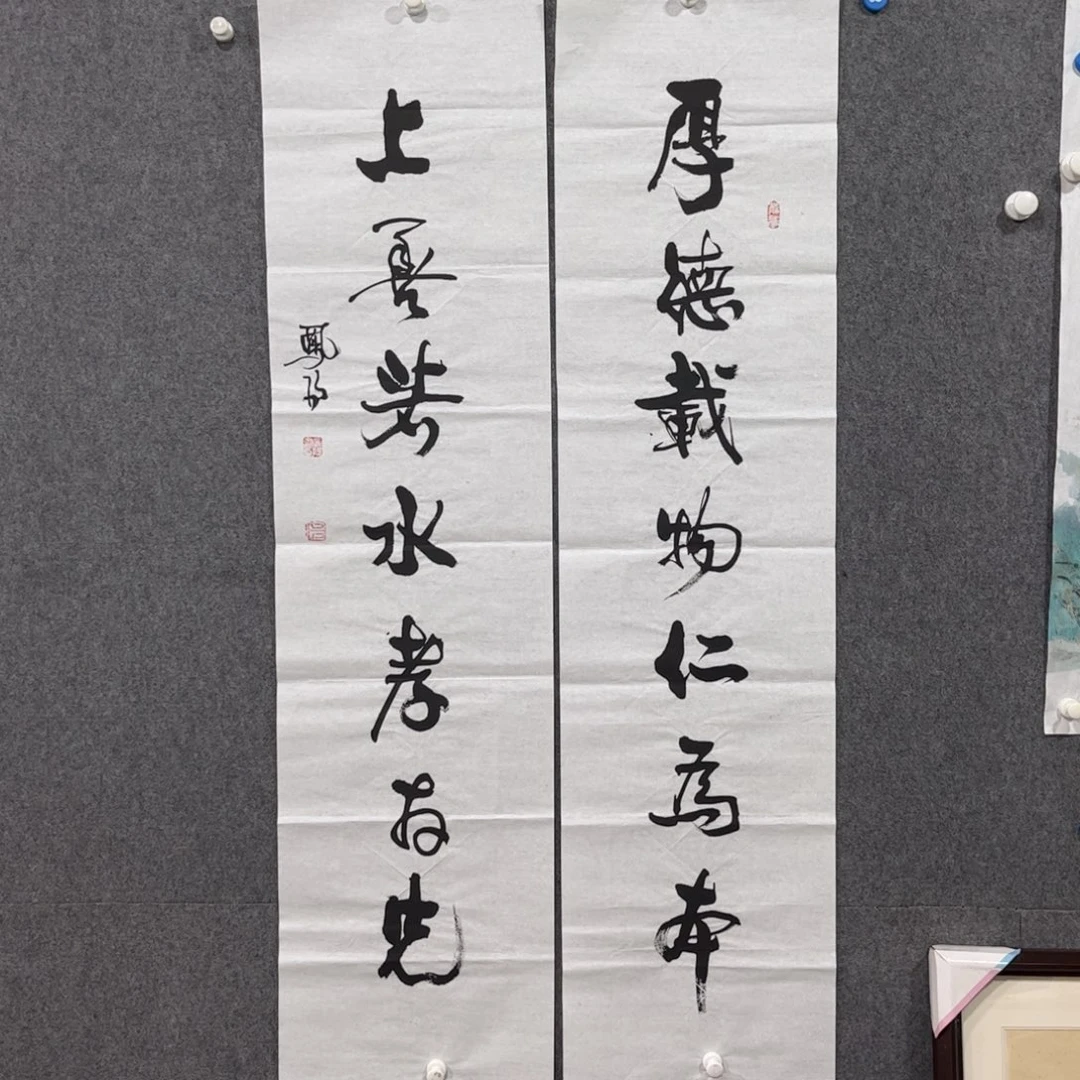 厚德載物仁為本
上善若水孝在先